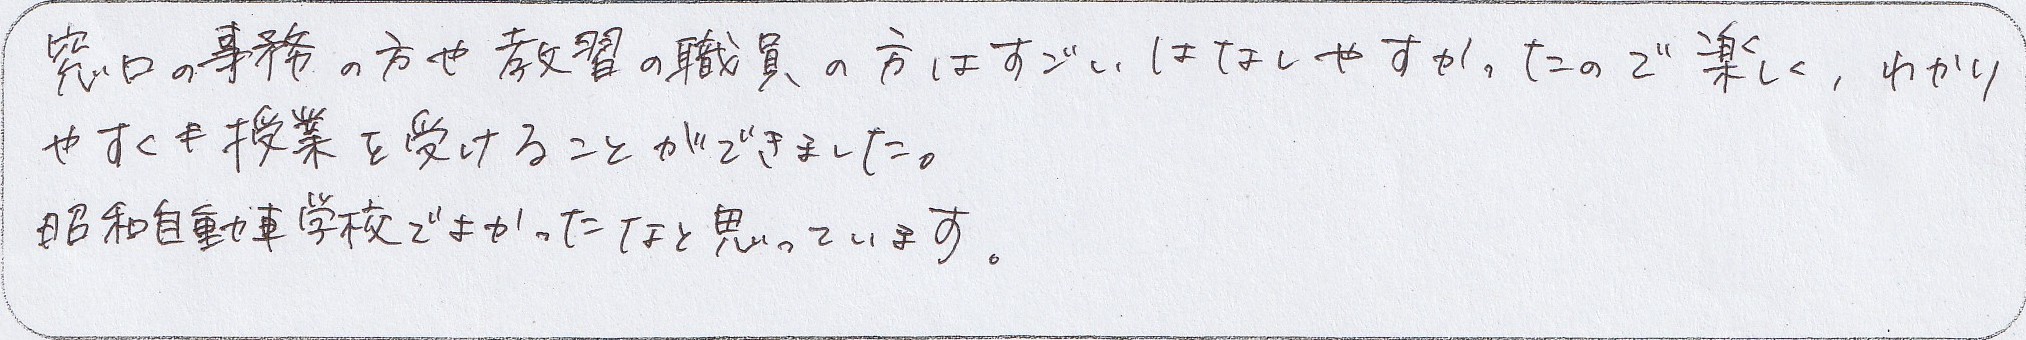 窓口の事務の方や教習の職員の方はすごいはなしやすかったので楽しく、わかり
やすくも授業を受けることができました。
昭和自動車学校でよかったなと思っています。